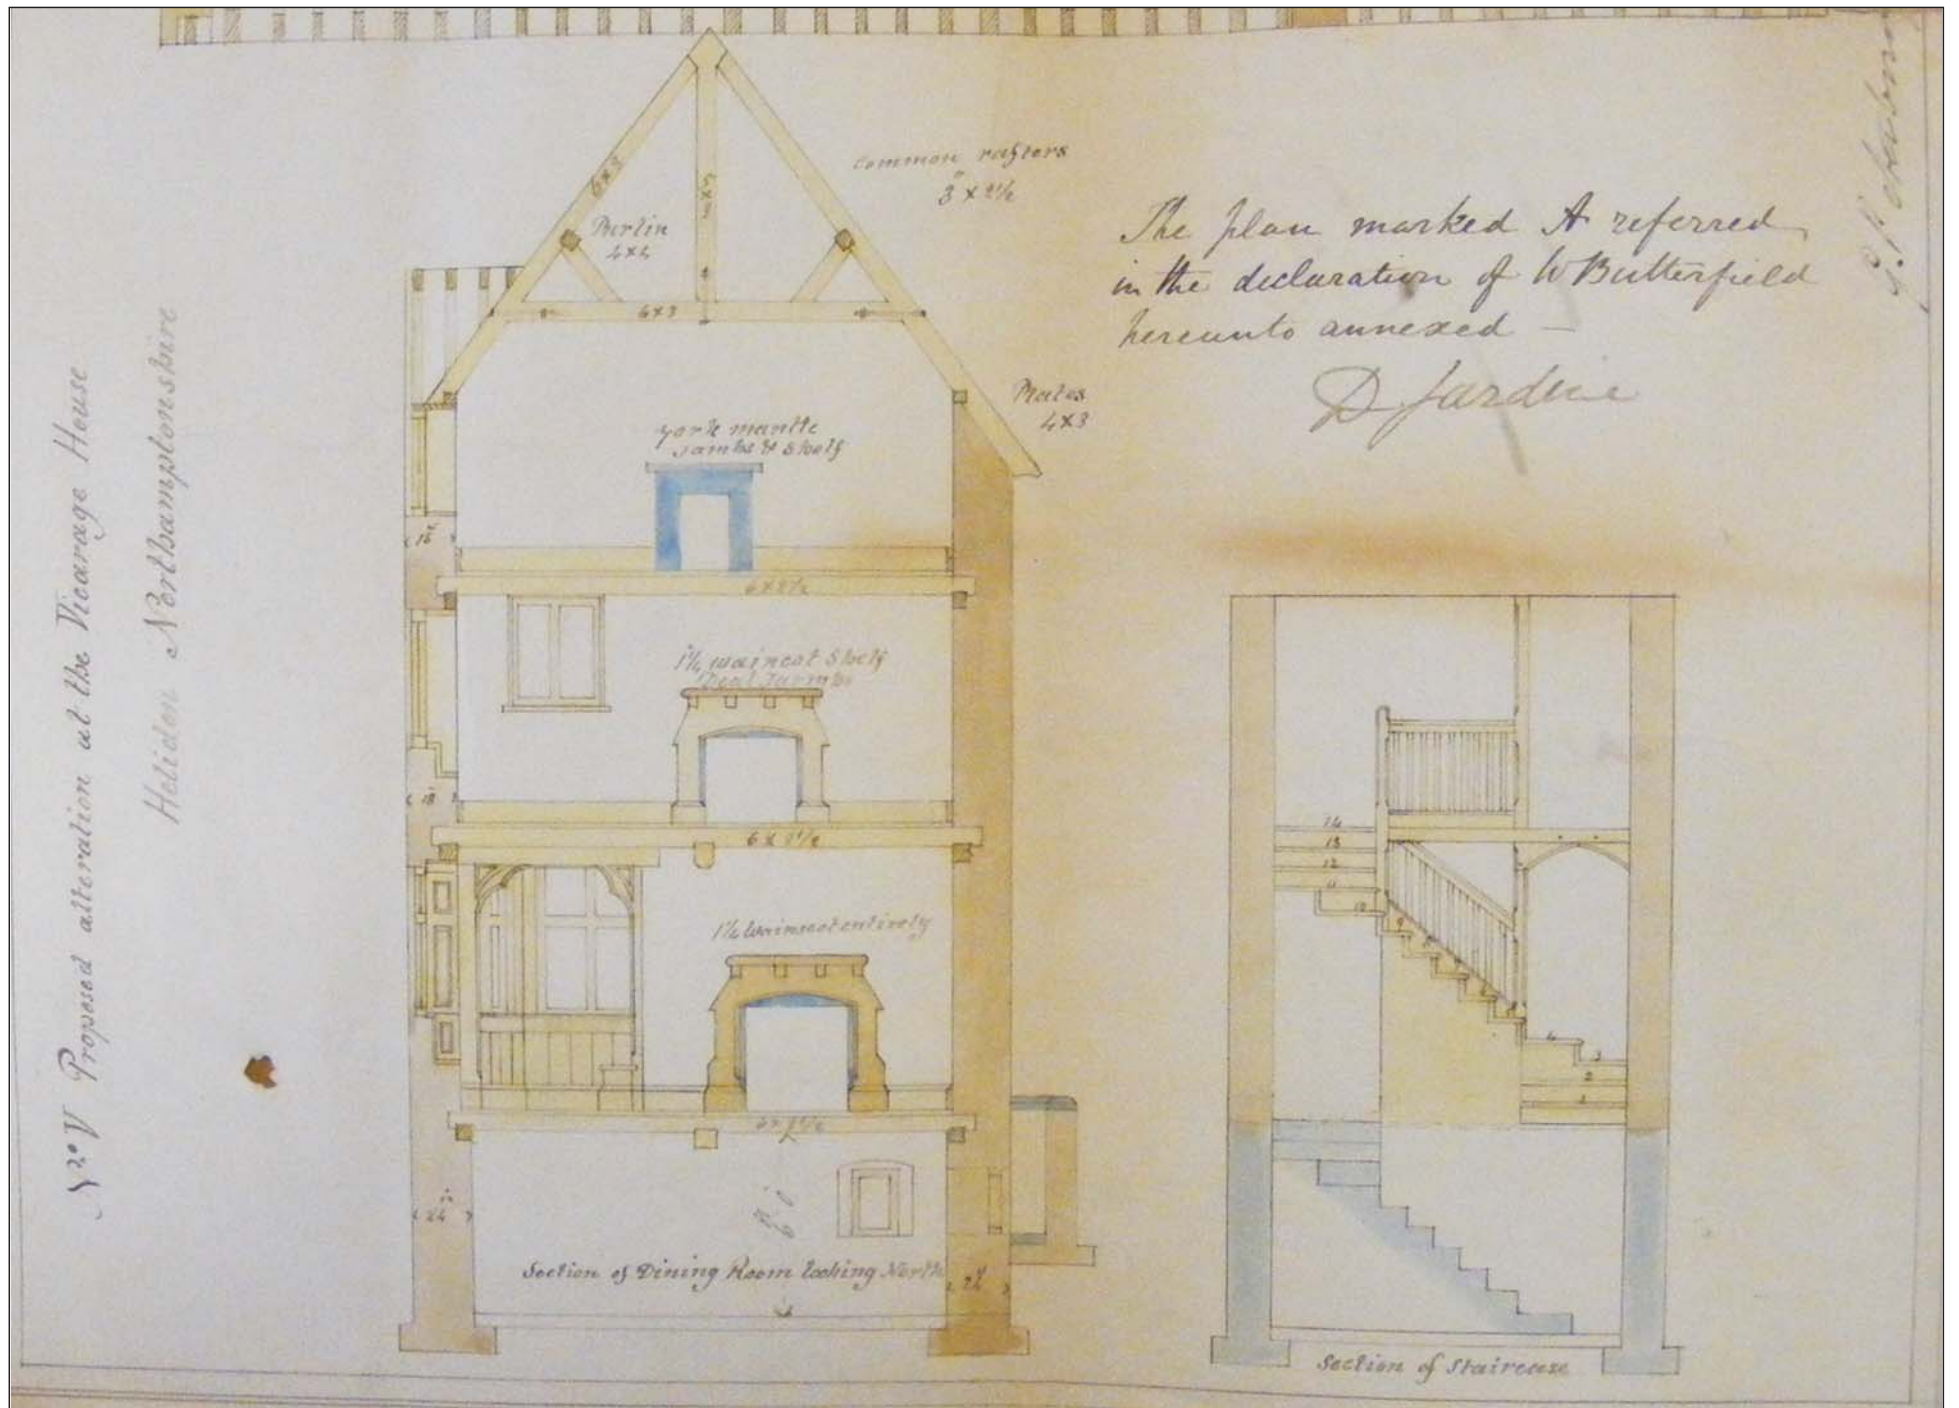 No V Proposed alteration at the Vicarage House
Helidon Northamptonshire
Common rafters
3" x 2½
6x3
Perlin
4x4
6x3
Plates
4x3
York mantle
Jambs & Shelf
18
6x2½
1¼ wainscot Shelf
Deal Jambs
18
6 x 2½
1¼ Wainscot entirely
24
Section of Dining Room looking North
24
The plan marked A referred
in the declaration of W Butterfield
hereunto annexed —
D Jardine
14
13
12
11
10
9
4
3
2
1
Section of Staircase